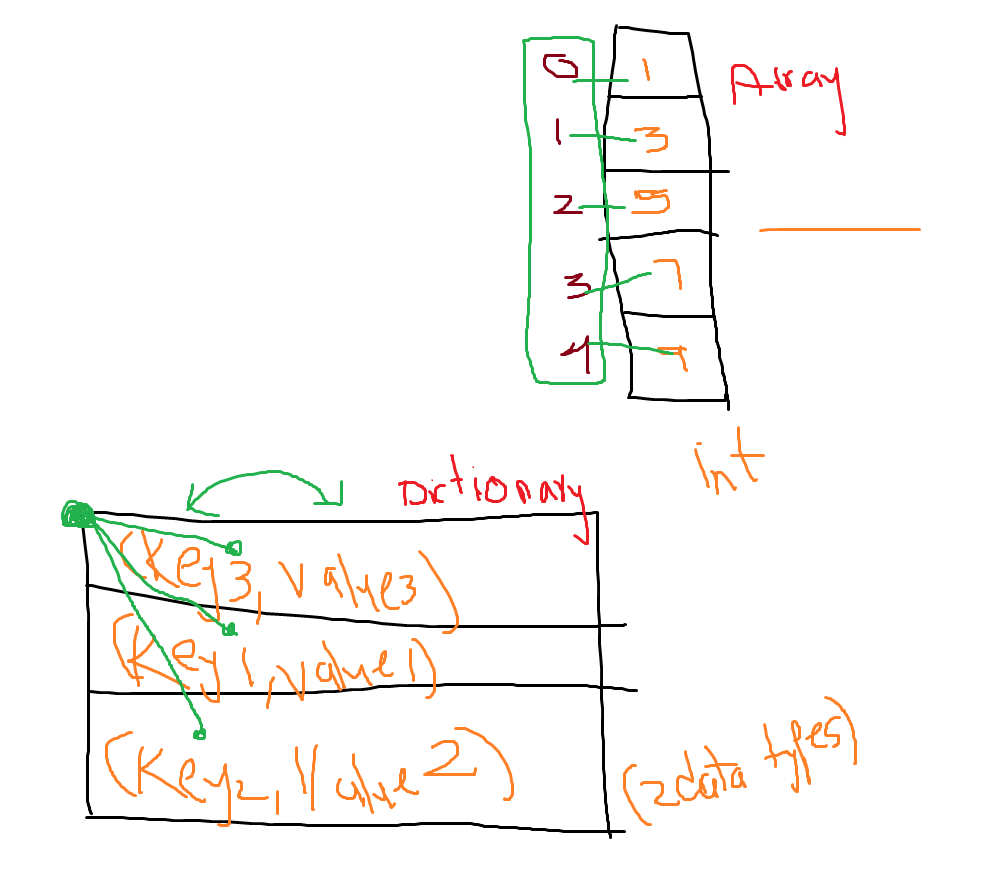 0 1 Array
1 3
2 5
3 7
4 9
int
Dictionary
(Key3, Value3)
(Key1, Value1)
(Key2, Value2)
(2 data types)